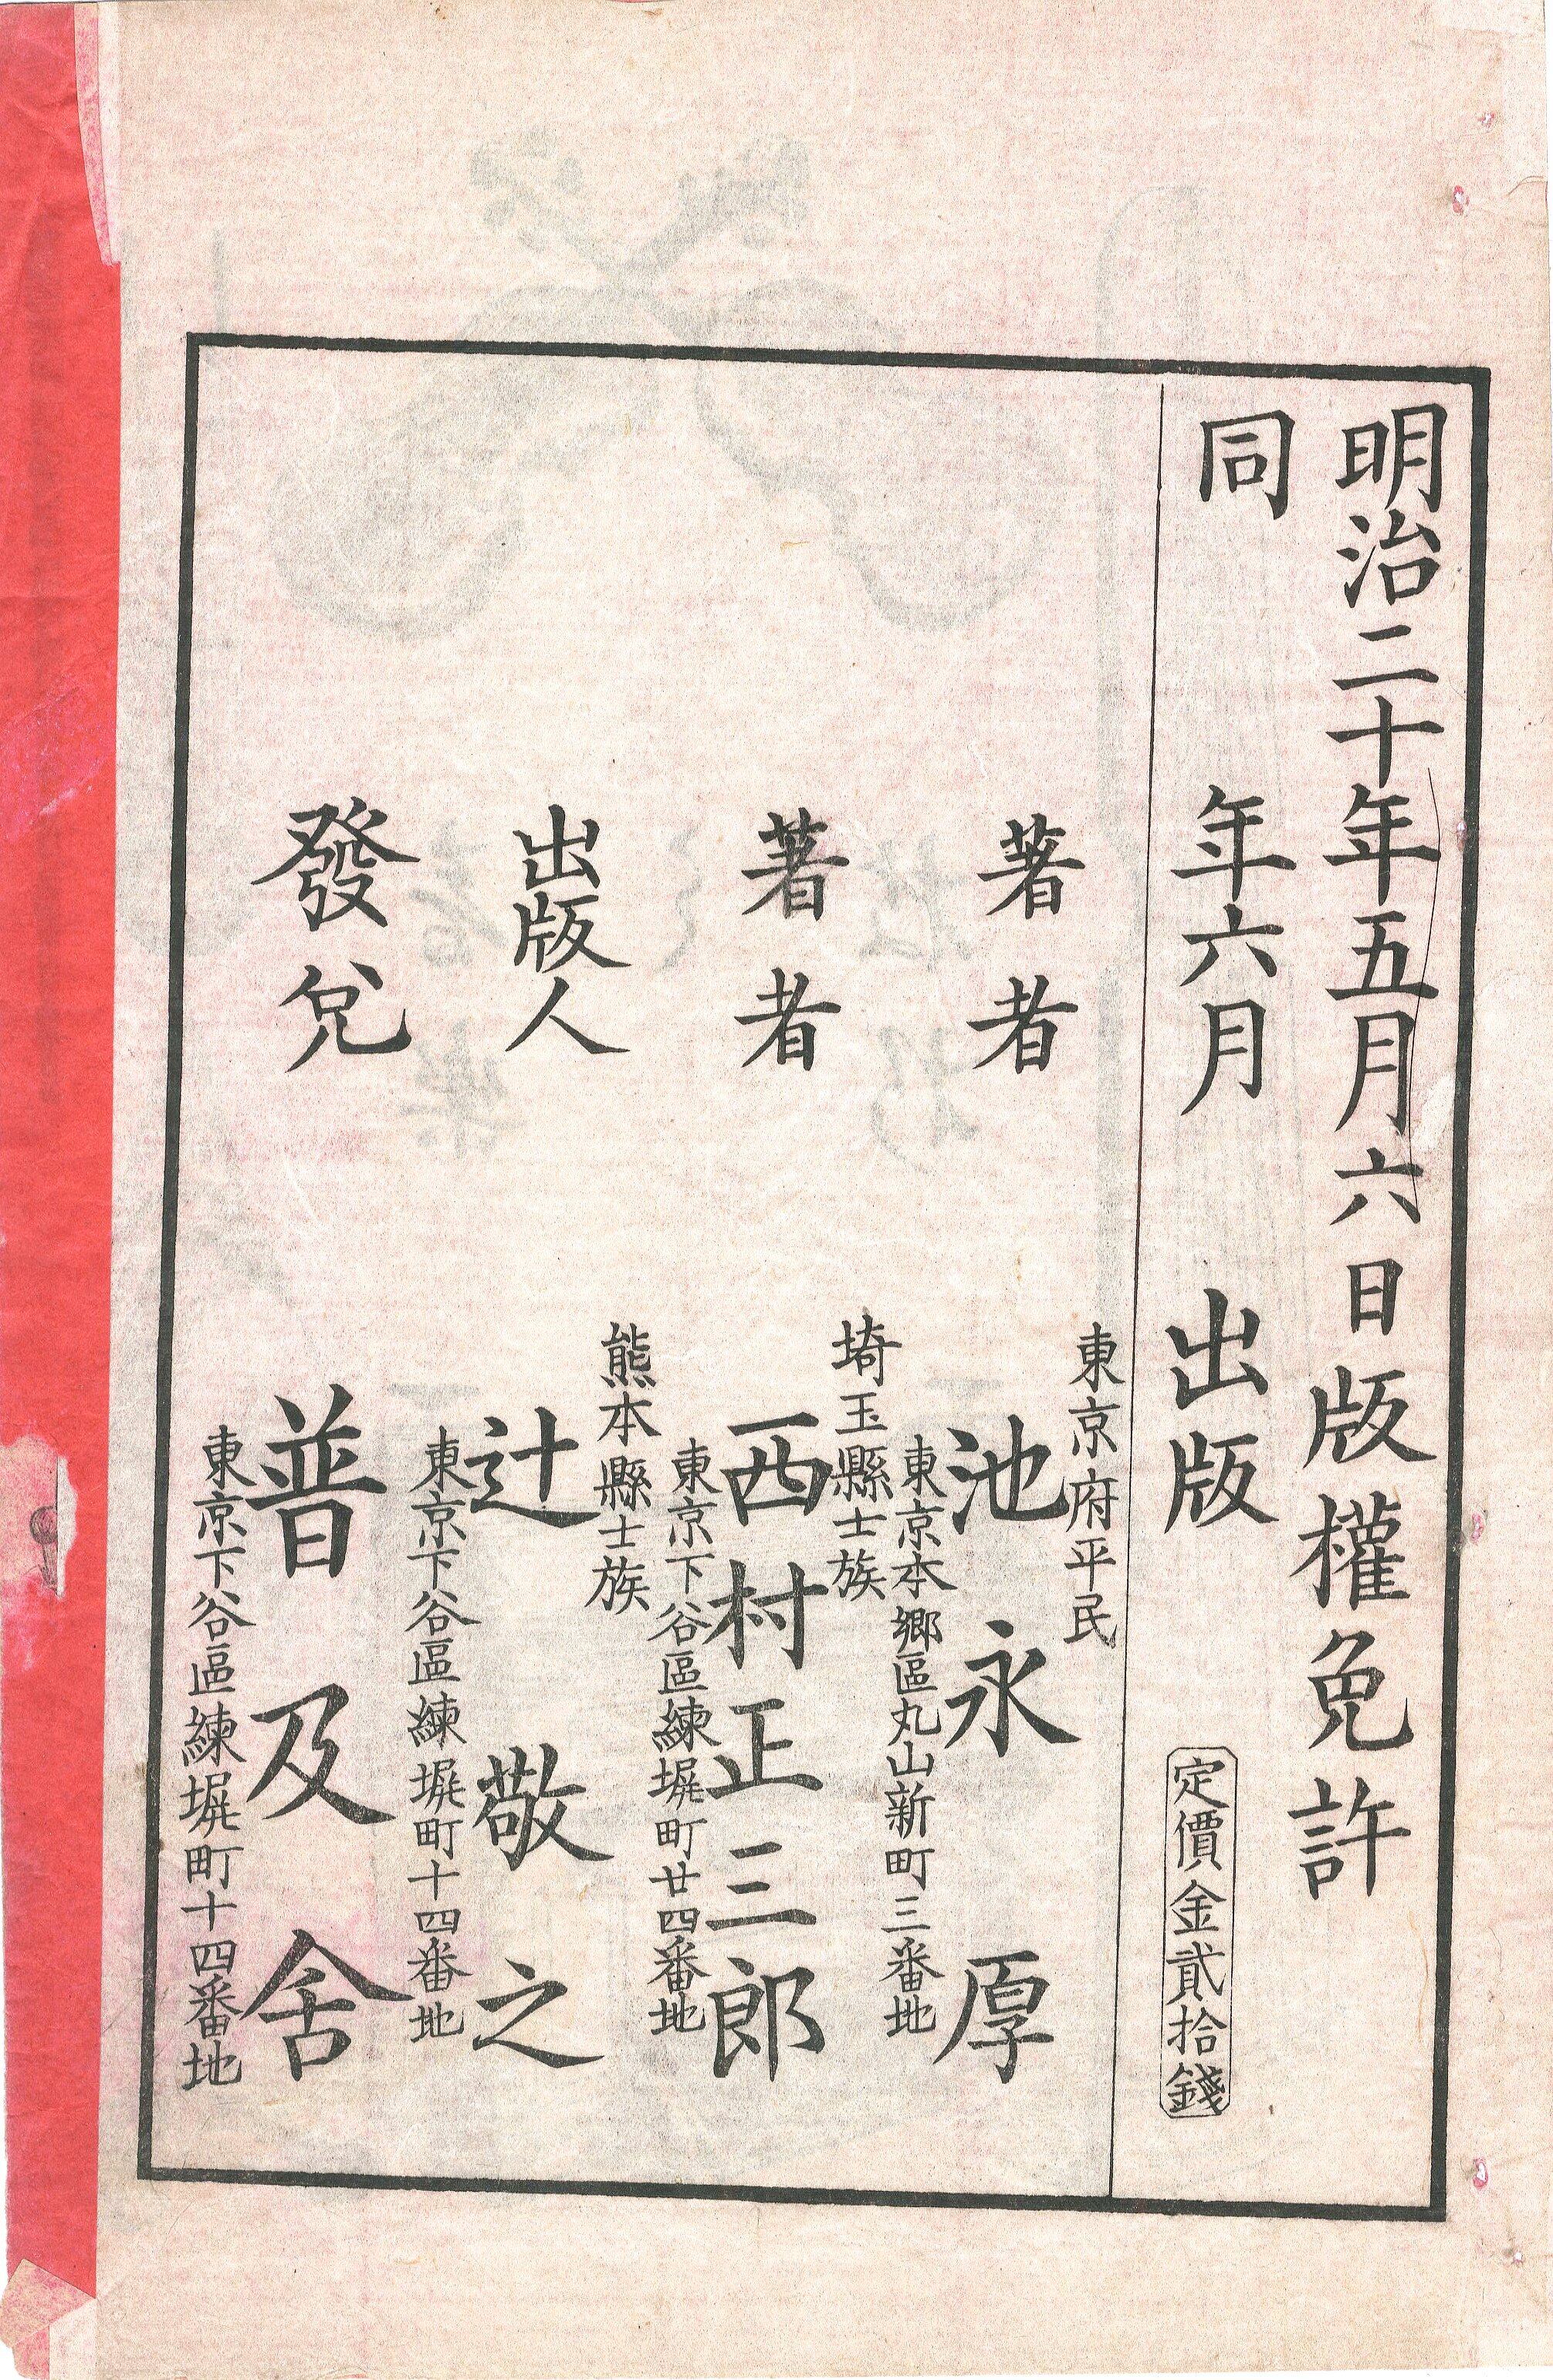 明治二十年五月六日版權免許
同年六月出版
定價金貳拾錢
東京府平民
著者 池永厚
東京本郷區丸山新町三番地
埼玉縣士族
著者 西村正三郎
東京下谷區練塀町廿四番地
熊本縣士族
出版人 辻敬之
東京下谷區練塀町十四番地
發兌 普及舍
東京下谷區練塀町十四番地